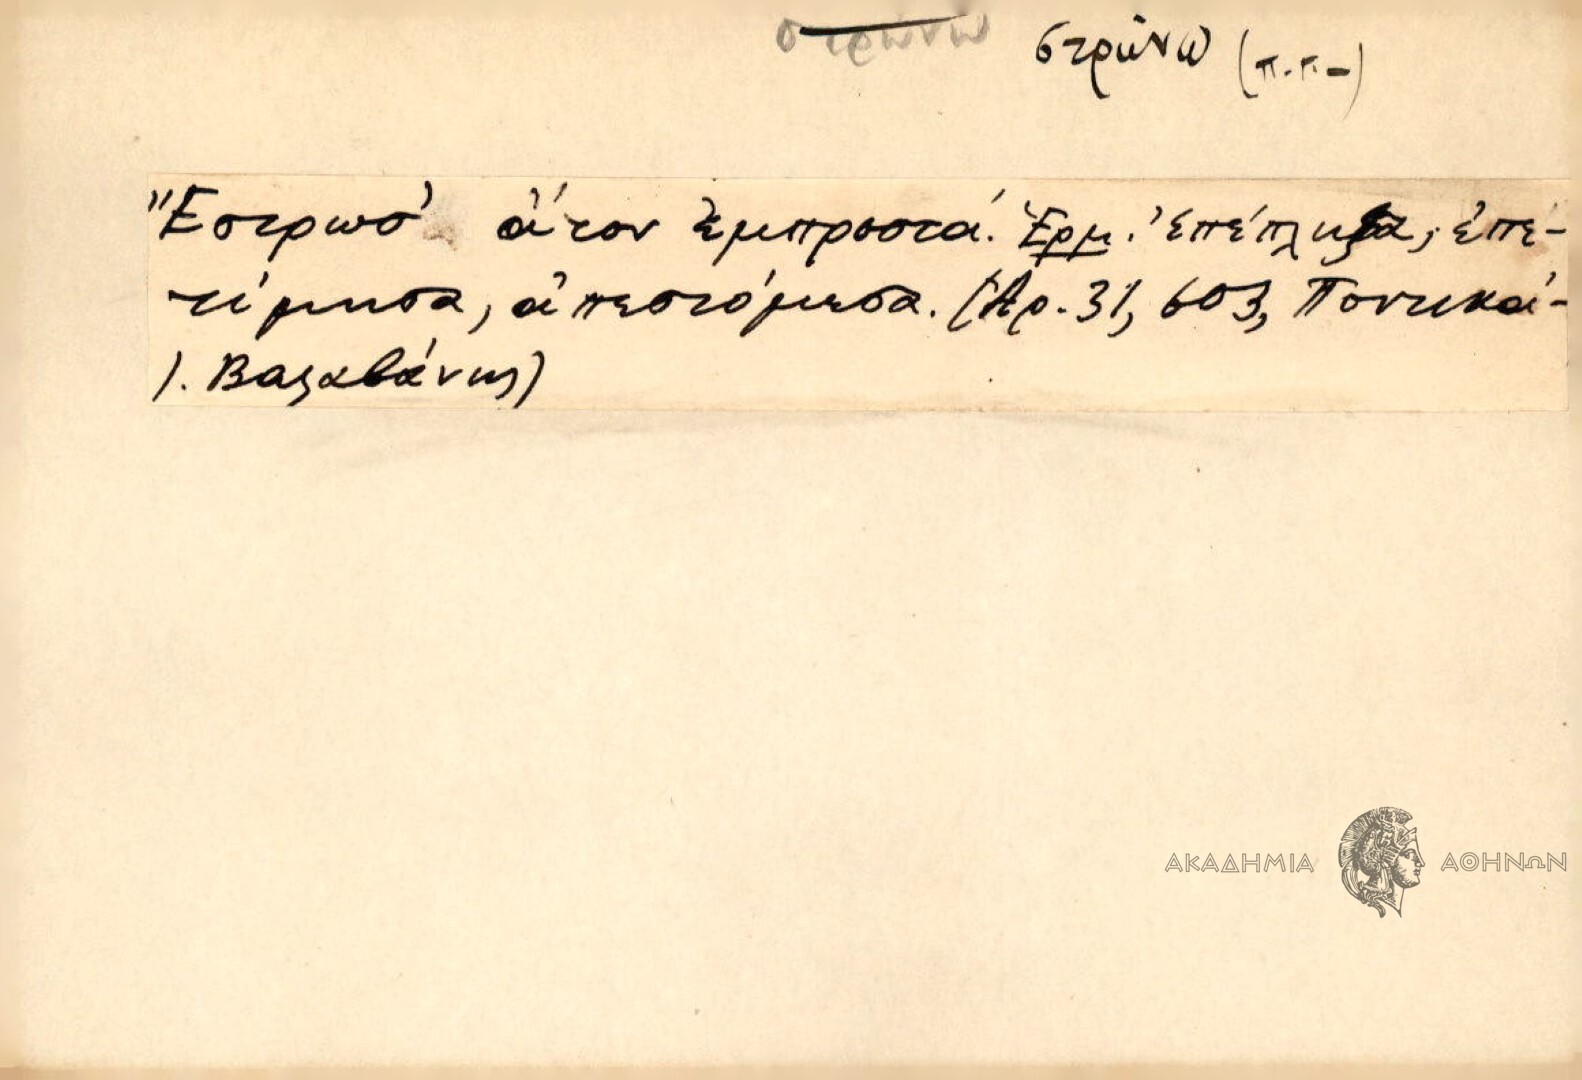 στρώνω στρώνω (π.π.-)
Ἔστρωσ' ἄτον ἐμπροστά. Ἑρμ. ἐπέπληξα, ἐπε-
τίμησα, ἀπεστόμωσα. (Ἀρ. 31, 603, Ποντικά-
Ι. Βαλαβάνης)
ΑΚΑΔΗΜΙΑ ΑΘΗΝΩΝ